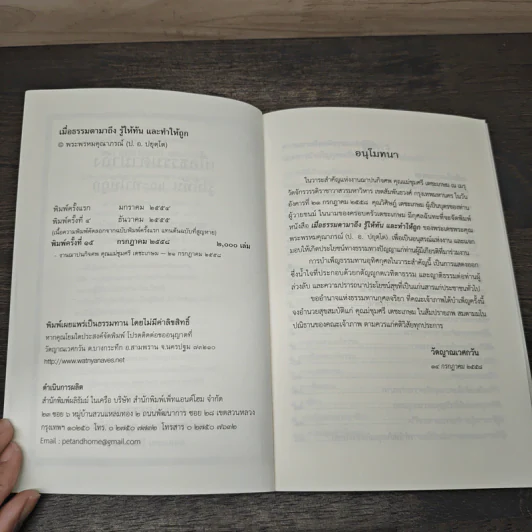 เมื่อธรรมดามาถึง รู้ให้ทัน และทำให้ถูก
© พระพรหมคุณาภรณ์ (ป. อ. ปยุตฺโต)
พิมพ์ครั้งแรก มกราคม ๒๕๕๔
พิมพ์ครั้งที่ ๔ ธันวาคม ๒๕๕๕
(เนื้อความพิมพ์คัดลอกจากฉบับพิมพ์ครั้งแรก แทนต้นฉบับที่สูญหาย)
พิมพ์ครั้งที่ ๑๕ กรกฎาคม ๒๕๕๘ ๒,๐๐๐ เล่ม
- งานฌาปนกิจศพ คุณแม่ชุมศรี เตชะเกษม – ๒๑ กรกฎาคม ๒๕๕๘
พิมพ์เผยแพร่เป็นธรรมทาน โดยไม่มีค่าลิขสิทธิ์
หากคุณโยมใดประสงค์จัดพิมพ์ โปรดติดต่อขออนุญาตที่
วัดญาณเวศกวัน ต.บางกระทึก อ.สามพราน จ.นครปฐม ๗๓๒๑๐
http://www.watnyanaves.net
ดำเนินการผลิต
สำนักพิมพ์ผลิธัมม์ ในเครือ บริษัท สำนักพิมพ์เพ็ทแอนด์โฮม จำกัด
๒๓ ซอย ๖ หมู่บ้านสวนแหลมทอง ๒ ถนนพัฒนาการ ซอย ๒๘ เขตสวนหลวง
กรุงเทพฯ ๑๐๒๕๐ โทร. ๐ ๒๗๕๐ ๗๗๓๒ โทรสาร ๐ ๒๗๕๐
Email : petandhome@gmail.com
อนุโมทนา
ในวาระสำคัญแห่งงานฌาปนกิจศพ คุณแม่ชุมศรี เตชะเกษม ณ เมรุ
วัดจักรวรรดิราชาวาสวรมหาวิหาร เขตสัมพันธวงศ์ กรุงเทพมหานคร ในวัน
อังคารที่ ๒๑ กรกฎาคม ๒๕๕๘ คุณวิศิษฏ์ เตชะเกษม ผู้เป็นบุตรของท่าน
ผู้วายชนม์ ในนามของครอบครัวเตชะเกษม มีกุศลฉันทะที่จะจัดพิมพ์
หนังสือ เมื่อธรรมดามาถึง รู้ให้ทัน และทำให้ถูก ของพระเดชพระคุณ
พระพรหมคุณาภรณ์ (ป. อ. ปยุตฺโต) เพื่อเป็นอนุสรณ์แห่งงาน และแจก
มอบให้เกิดประโยชน์ทางธรรมทางปัญญาแก่ญาติมิตรท่านผู้มีเกียรติที่มาร่วมงาน
การบำเพ็ญธรรมทานอุทิศกุศลในวาระสำคัญนี้ เป็นการแสดงออก
ซึ่งน้ำใจที่ประกอบด้วยกตัญญุกตเวทิตาธรรม และญาติธรรมต่อท่านผู้
ล่วงลับ และความปรารถนาประโยชน์สุขที่เป็นแก่นสารแก่ประชาชนทั่วไป
ขออำนาจแห่งธรรมทานกุศลจริยา ที่คณะเจ้าภาพได้บำเพ็ญครั้งนี้
จงอำนวยสุขสมบัติแก่ คุณแม่ชุมศรี เตชะเกษม ในสัมปรายภพ สมตามมโน
ปณิธานของคณะเจ้าภาพ ตามควรแก่คติวิสัยทุกประการ
วัดญาณเวศกวัน
๑๔ กรกฎาคม ๒๕๕๘